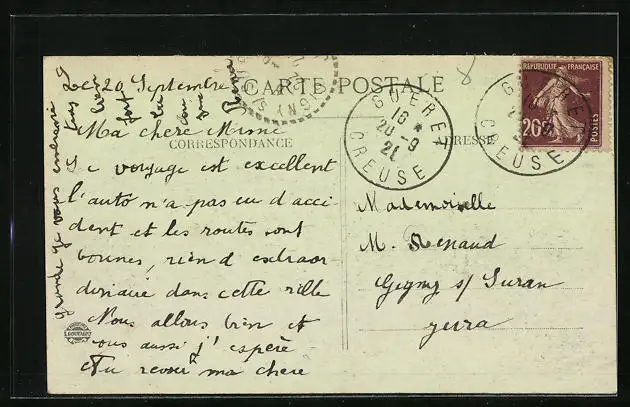 Le 20 Septembre
Ma chère Mimi
Le voyage est excellent
l'auto n'a pas eu d'acci
dent et les routes sont
bonnes, rien d'extraor
dinaire dans cette ville
Nous allons bien et
vous aussi j'espère
Au revoir ma chère
grande je vous embrasse
bien fort
CARTE POSTALE
CORRESPONDANCE
ADRESSE
GUERET
16 *
20 -9
21
CREUSE
GUERET
CREUSE
REPUBLIQUE FRANÇAISE
20c
POSTES
Mademoiselle
M. Renaud
Gigny s/ Suran
Jura